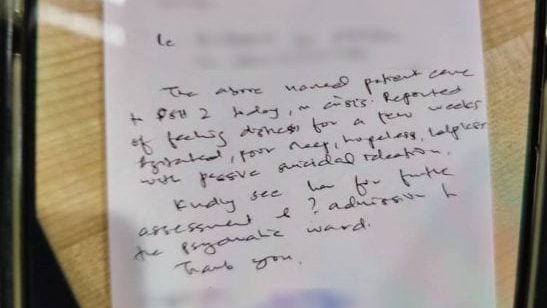 Re
The above named patient came
to PSH 2 today, in crisis. Reported
of feeling distress for a few weeks
Agitated, poor sleep, hopeless, helpless
with passive suicidal ideation.
Kindly see her for further
assessment & ? admission to
the psychiatric ward.
Thank you.